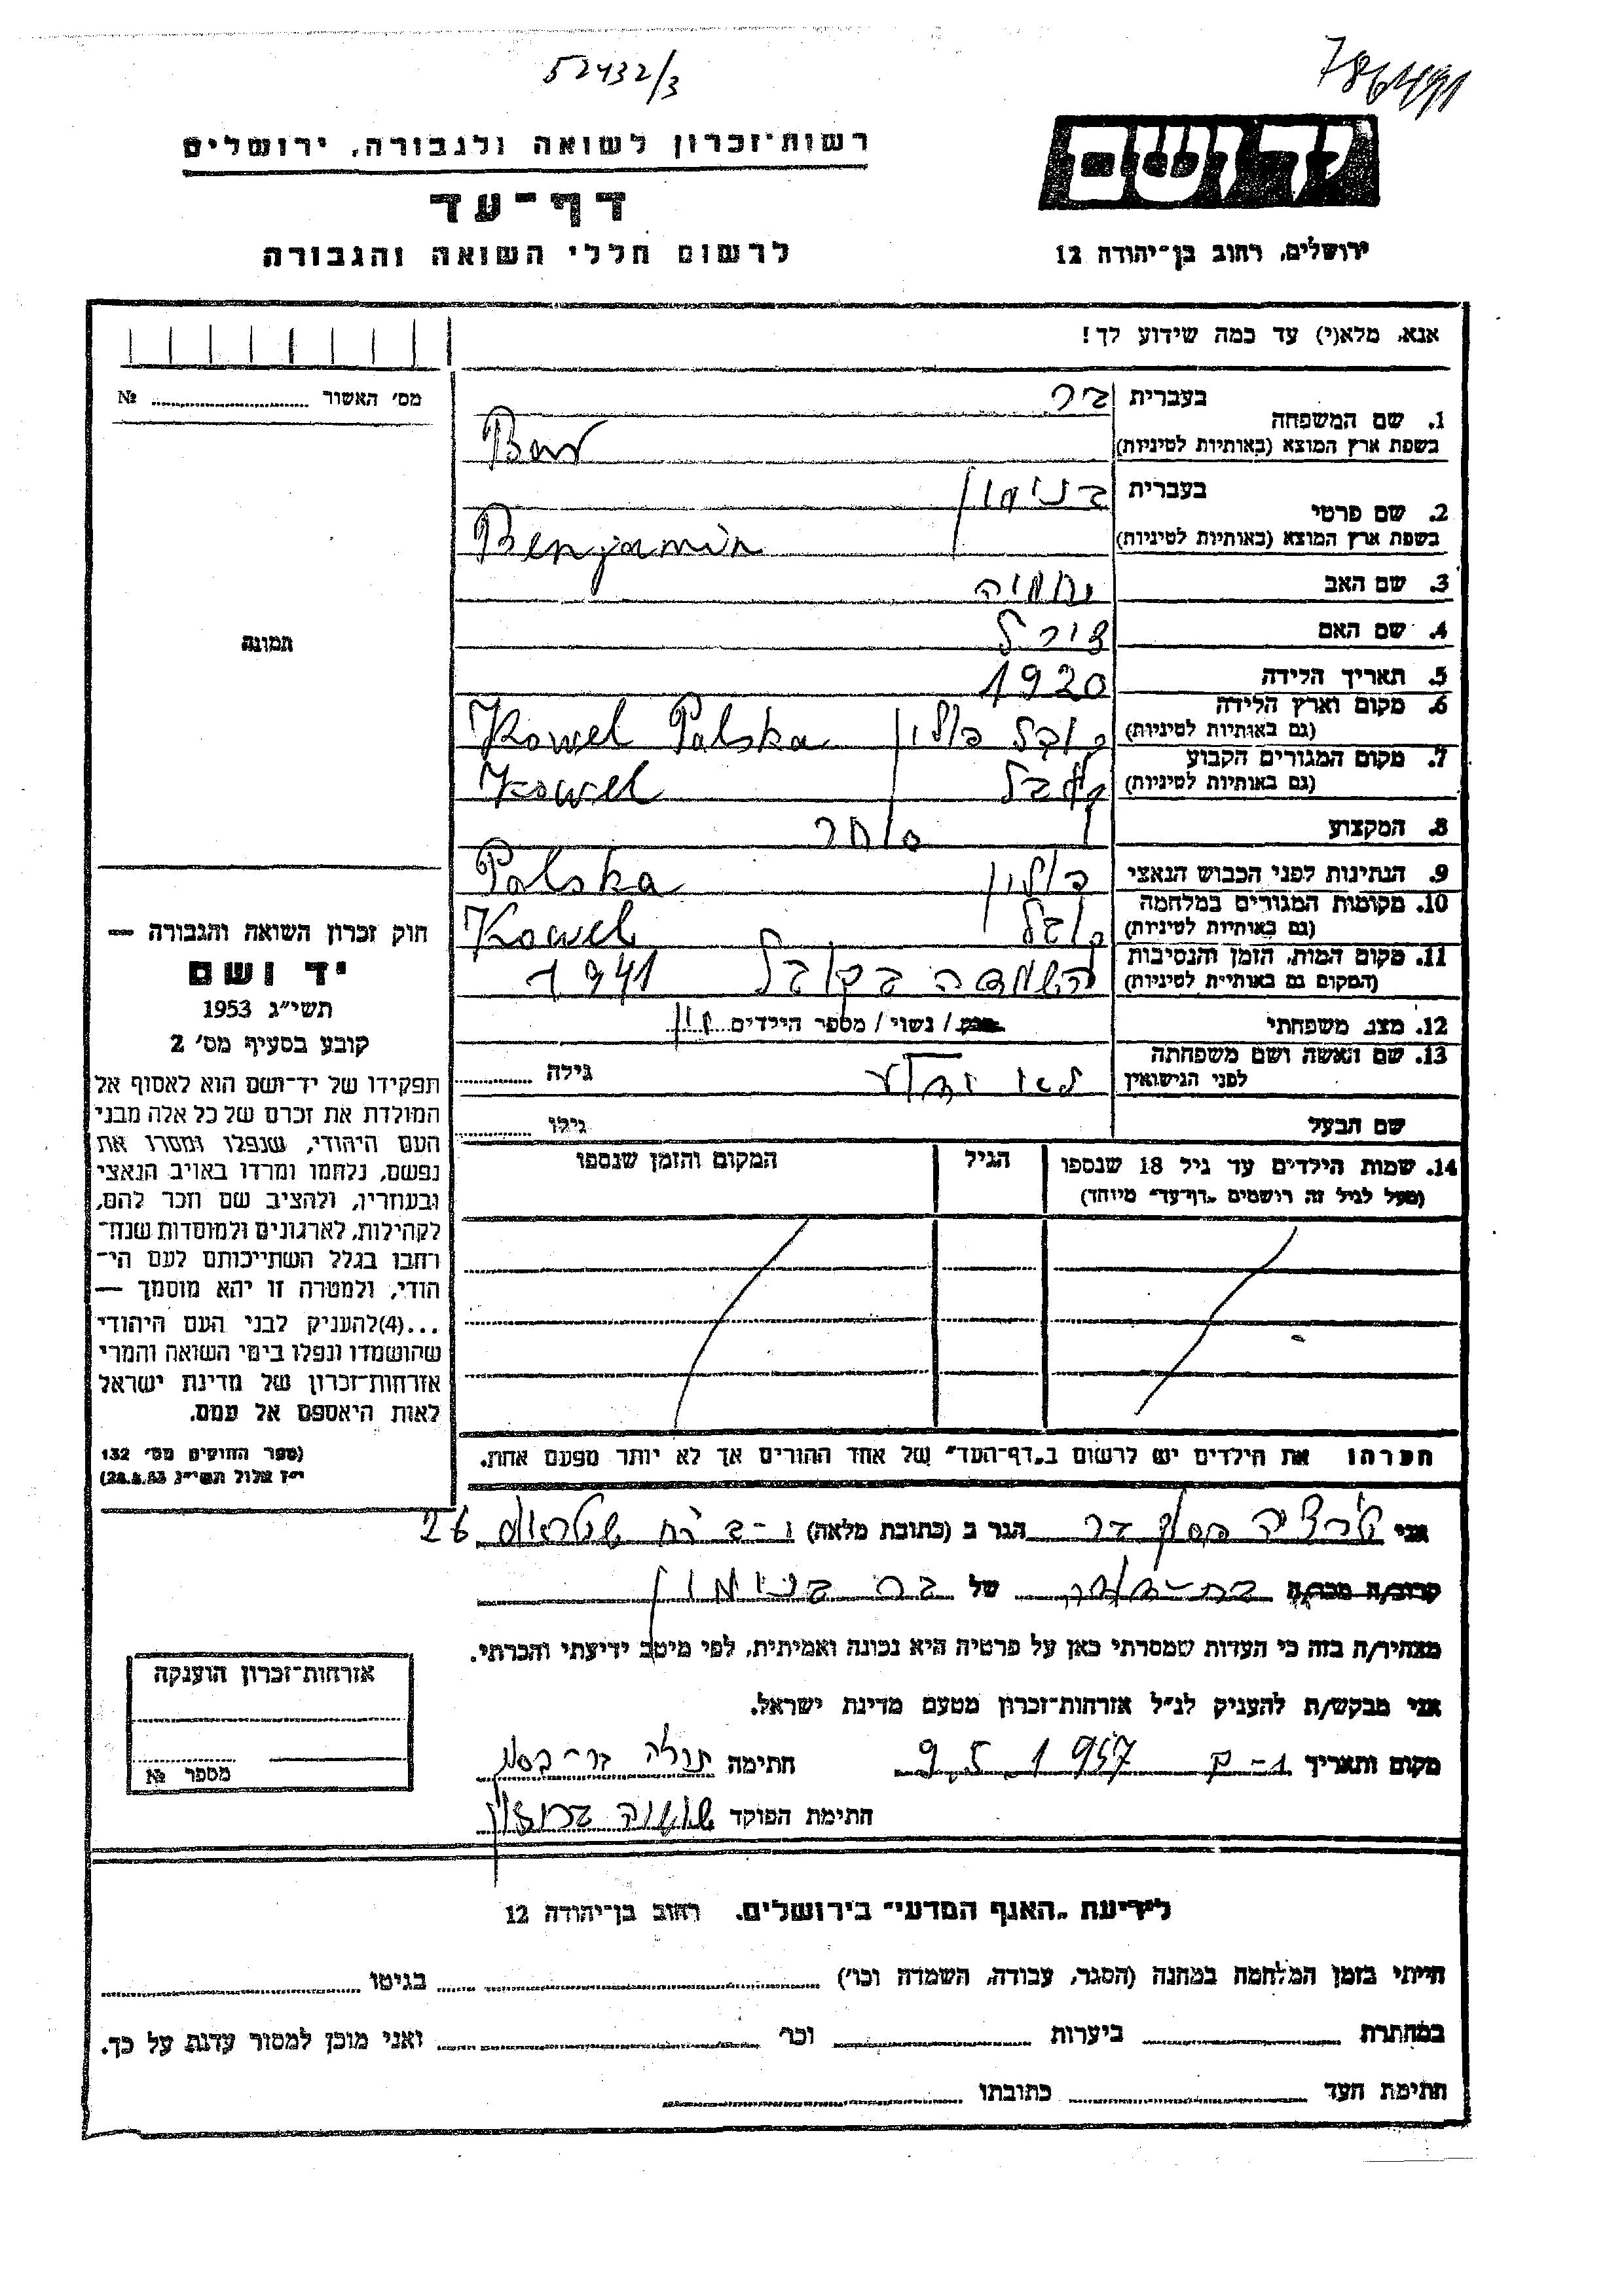 52432/3
רשות־זכרון לשואה ולגבורה, ירושלים
דף־עד
לרשום חללי השואה והגבורה
יד ושם
ירושלים, רחוב בן־יהודה 12
אנא, מלא(י) עד כמה שידוע לך!
מס׳ האשור № 
1. שם המשפחה
בעברית
בשפת ארץ המוצא (באותיות לטיניות)
2. שם פרטי
בעברית בנימין
בשפת ארץ המוצא (באותיות לטיניות) Benjamin
3. שם האב נחמיה
4. שם האם צירל
5. תאריך הלידה 1920
6. מקום וארץ הלידה
(גם באותיות לטיניות) קובל פולין Kowel Polska
7. מקום המגורים הקבוע
(גם באותיות לטיניות) קובל Kowel
8. המקצוע סוחר
9. הנתינות לפני הכבוש הנאצי פולין Polska
10. מקומות המגורים במלחמה
(גם באותיות לטיניות) קובל Kowel
11. מקום המות, הזמן והנסיבות
(המקום גם באותיית לטיניות) בקובל 1941
12. מצב משפחתי / נשוי / מספר הילדים
13. שם האשה ושם משפחתה
לפני הנישואין גילה
שם הבעל גילו
14. שמות הילדים עד גיל 18 שנספו
(מעל לגיל זה רושמים „דף־עד״ מיוחד)
הגיל
המקום והזמן שנספו
תמונה
חוק זכרון השואה והגבורה —
יד ושם
תשי״ג 1953
קובע בסעיף מס׳ 2
תפקידו של יד־ושם הוא לאסוף אל
המולדת את זכרם של כל אלה מבני
העם היהודי, שנפלו ומסרו את
נפשם, נלחמו ומרדו באויב הנאצי
ובעוזריו, ולהציב שם וזכר להם,
לקהילות, לארגונים ולמוסדות שנח־
רחבו בגלל השתייכותם לעם הי־
הודי, ולמטרה זו יהא מוסמך —
...(4)להעניק לבני העם היהודי
שהושמדו ונפלו בימי השואה והמרי
אזרחות־זכרון של מדינת ישראל
לאות היאספם אל עמם.
(ספר החוקים מס׳ 132
י״ז אלול תשי״ג 28.8.53)
הערה: את הילדים יש לרשום ב„דף־העד״ של אחד ההורים אך לא יותר מפעם אחת.
אני הגר ב (כתובת מלאה) 26
קרוב/ה מכר/ה של בנימין
מצהיר/ה בזה כי העדות שמסרתי כאן על פרטיה היא נכונה ואמיתית, לפי מיטב ידיעתי והכרתי.
אני מבקש/ת להעניק לנ״ל אזרחות־זכרון מטעם מדינת ישראל.
מקום ותאריך 9.5.1957 חתימה
חתימת הפוקד
אזרחות־זכרון הוענקה
מספר №
לידיעת „האגף המדעי״ בירושלים. רחוב בן־יהודה 12
הייתי בזמן המלחמה במחנה (הסגר, עבודה, השמדה וכו׳) בגיטו
במחתרת ביערות וכו׳ ואני מוכן למסור עדות על כך.
חתימת העד כתובתו